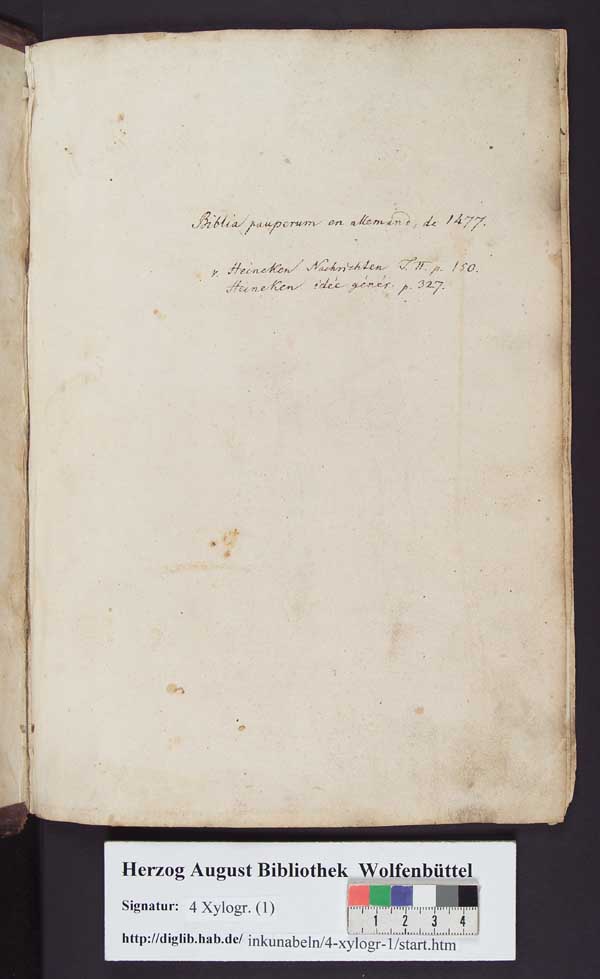 Biblia pauperum en allemand, de 1477.
v. Heineken Nachrichten T. II. p. 150.
Heineken idée génér. p. 327.
Herzog August Bibliothek Wolfenbüttel
Signatur: 4 Xylogr. (1)
1 2 3 4
http://diglib.hab.de/ inkunabeln/4-xylogr-1/start.htm